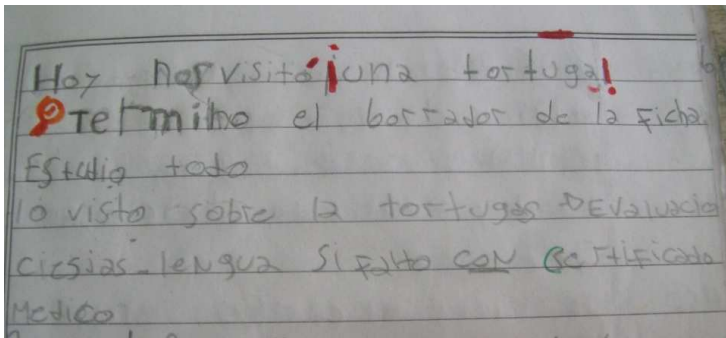 Hoy nos visitó ¡una tortuga!
Termino el borrador de la Ficha.
Estudio todo
lo visto sobre la tortugas Evaluacio
ciesias-lengua Si Falto CON Certificado
Medico